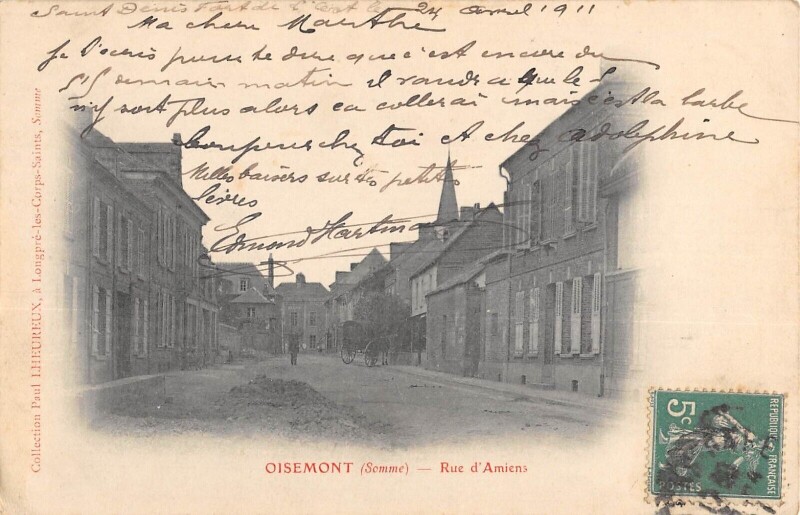 Saint Denis Fort de l'Est le 24 avril 1911
Ma chere Marthe
Je t'ecris pour te dire que c'est encore du
demain matin il faudra que le
n'y sort plus alors ca collerai mais c'est la barbe
bonjour chez toi et chez Adolphine
Milles baisers sur tes petites
lèvres
Edmond Hartman
Collection Paul LHEUREUX, à Longpré-les-Corps-Saints, Somme
OISEMONT (Somme) — Rue d'Amiens
5c
REPUBLIQUE FRANÇAISE
POSTES